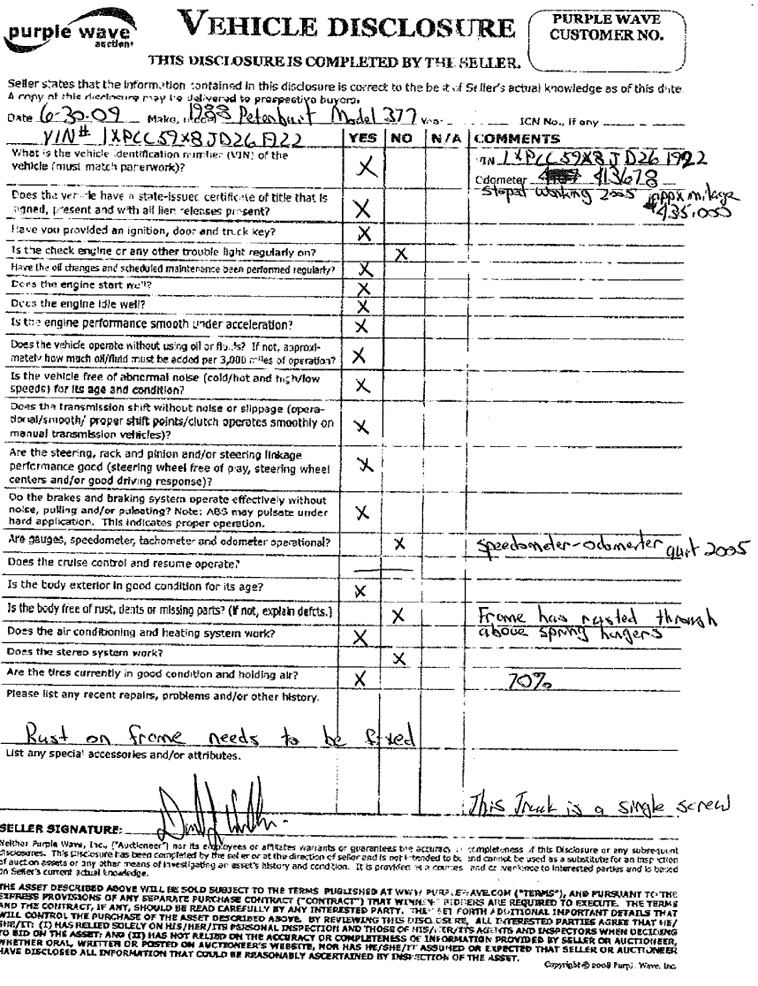 purple wave
auction
VEHICLE DISCLOSURE
PURPLE WAVE
CUSTOMER NO.
THIS DISCLOSURE IS COMPLETED BY THE SELLER.
Seller states that the information contained in this disclosure is correct to the best of Seller's actual knowledge as of this date.
A copy of this disclosure may be delivered to prospective buyers.
Date 6-30-09 Make, Model 1988 Peterbuit Model 377 Year ICN No., if any
VIN# 1XPCC59X8JD261922 YES NO N/A COMMENTS
What is the vehicle identification number (VIN) of the
vehicle (must match paperwork)? X VIN 1XPCC59X8JD261922
Odometer 413678
Does the vehicle have a state-issued certificate of title that is
signed, present and with all lien releases present? X stopet working 2005 appx milage
435,000
Have you provided an ignition, door and truck key? X
Is the check engine or any other trouble light regularly on? X
Have the oil changes and scheduled maintenance been performed regularly? X
Does the engine start well? X
Does the engine idle well? X
Is the engine performance smooth under acceleration? X
Does the vehicle operate without using oil or fluids? If not, approxi-
mately how much oil/fluid must be added per 3,000 miles of operation? X
Is the vehicle free of abnormal noise (cold/hot and high/low
speeds) for its age and condition? X
Does the transmission shift without noise or slippage (opera-
tional/smooth/ proper shift points/clutch operates smoothly on
manual transmission vehicles)? X
Are the steering, rack and pinion and/or steering linkage
performance good (steering wheel free of play, steering wheel
centers and/or good driving response)? X
Do the brakes and braking system operate effectively without
noise, pulling and/or pulsating? Note: ABS may pulsate under
hard application. This indicates proper operation. X
Are gauges, speedometer, tachometer and odometer operational? X speedometer-odomerter quit 2005
Does the cruise control and resume operate?
Is the body exterior in good condition for its age? X
Is the body free of rust, dents or missing parts? (If not, explain defcts.) X Frame has rusted through
above spring hangers
Does the air conditioning and heating system work? X
Does the stereo system work? X
Are the tires currently in good condition and holding air? X 70%
Please list any recent repairs, problems and/or other history.
Rust on frame needs to be fixed
List any special accessories and/or attributes.
This Truck is a single screw
SELLER SIGNATURE:
Neither Purple Wave, Inc., ("Auctioneer") nor its employees or affiliates warrants or guarantees the accuracy or completeness of this Disclosure or any subsequent
disclosures. This Disclosure has been completed by the seller or at the direction of seller and is not intended to be and cannot be used as a substitute for an inspection
of auction assets or any other means of investigating an asset's history and condition. It is provided as a courtesy and convenience to interested parties and is based
on Seller's current actual knowledge.
THE ASSET DESCRIBED ABOVE WILL BE SOLD SUBJECT TO THE TERMS PUBLISHED AT WWW.PURPLEWAVE.COM ("TERMS"), AND PURSUANT TO THE
EXPRESS PROVISIONS OF ANY SEPARATE PURCHASE CONTRACT ("CONTRACT") THAT WINNING BIDDERS ARE REQUIRED TO EXECUTE. THE TERMS
AND THE CONTRACT, IF ANY, SHOULD BE READ CAREFULLY BY ANY INTERESTED PARTY. THEY SET FORTH ADDITIONAL IMPORTANT DETAILS THAT
WILL CONTROL THE PURCHASE OF THE ASSET DESCRIBED ABOVE. BY REVIEWING THIS DISCLOSURE, ALL INTERESTED PARTIES AGREE THAT HE/
SHE/IT: (I) HAS RELIED SOLELY ON HIS/HER/ITS PERSONAL INSPECTION AND THOSE OF HIS/HER/ITS AGENTS AND INSPECTORS WHEN DECIDING
TO BID ON THE ASSET; AND (II) HAS NOT RELIED ON THE ACCURACY OR COMPLETENESS OF INFORMATION PROVIDED BY SELLER OR AUCTIONEER,
WHETHER ORAL, WRITTEN OR POSTED ON AUCTIONEER'S WEBSITE, NOR HAS HE/SHE/IT ASSUMED OR EXPECTED THAT SELLER OR AUCTIONEER
HAVE DISCLOSED ALL INFORMATION THAT COULD BE REASONABLY ASCERTAINED BY INSPECTION OF THE ASSET.
Copyright © 2008 Purple Wave, Inc.